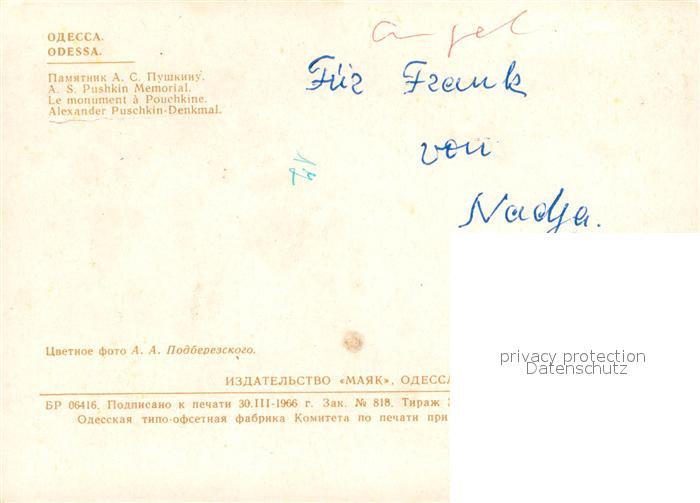 ОДЕССА.
ODESSA.
Памятник А. С. Пушкину.
A. S. Pushkin Memorial.
Le monument à Pouchkine.
Alexander Puschkin-Denkmal.
angel
Für Frank
von
Nadja.
Цветное фото А. А. Подберезского.
ИЗДАТЕЛЬСТВО «МАЯК», ОДЕССА
БР 06416. Подписано к печати 30.III-1966 г. Зак. № 818. Тираж
Одесская типо-офсетная фабрика Комитета по печати при
privacy protection
Datenschutz